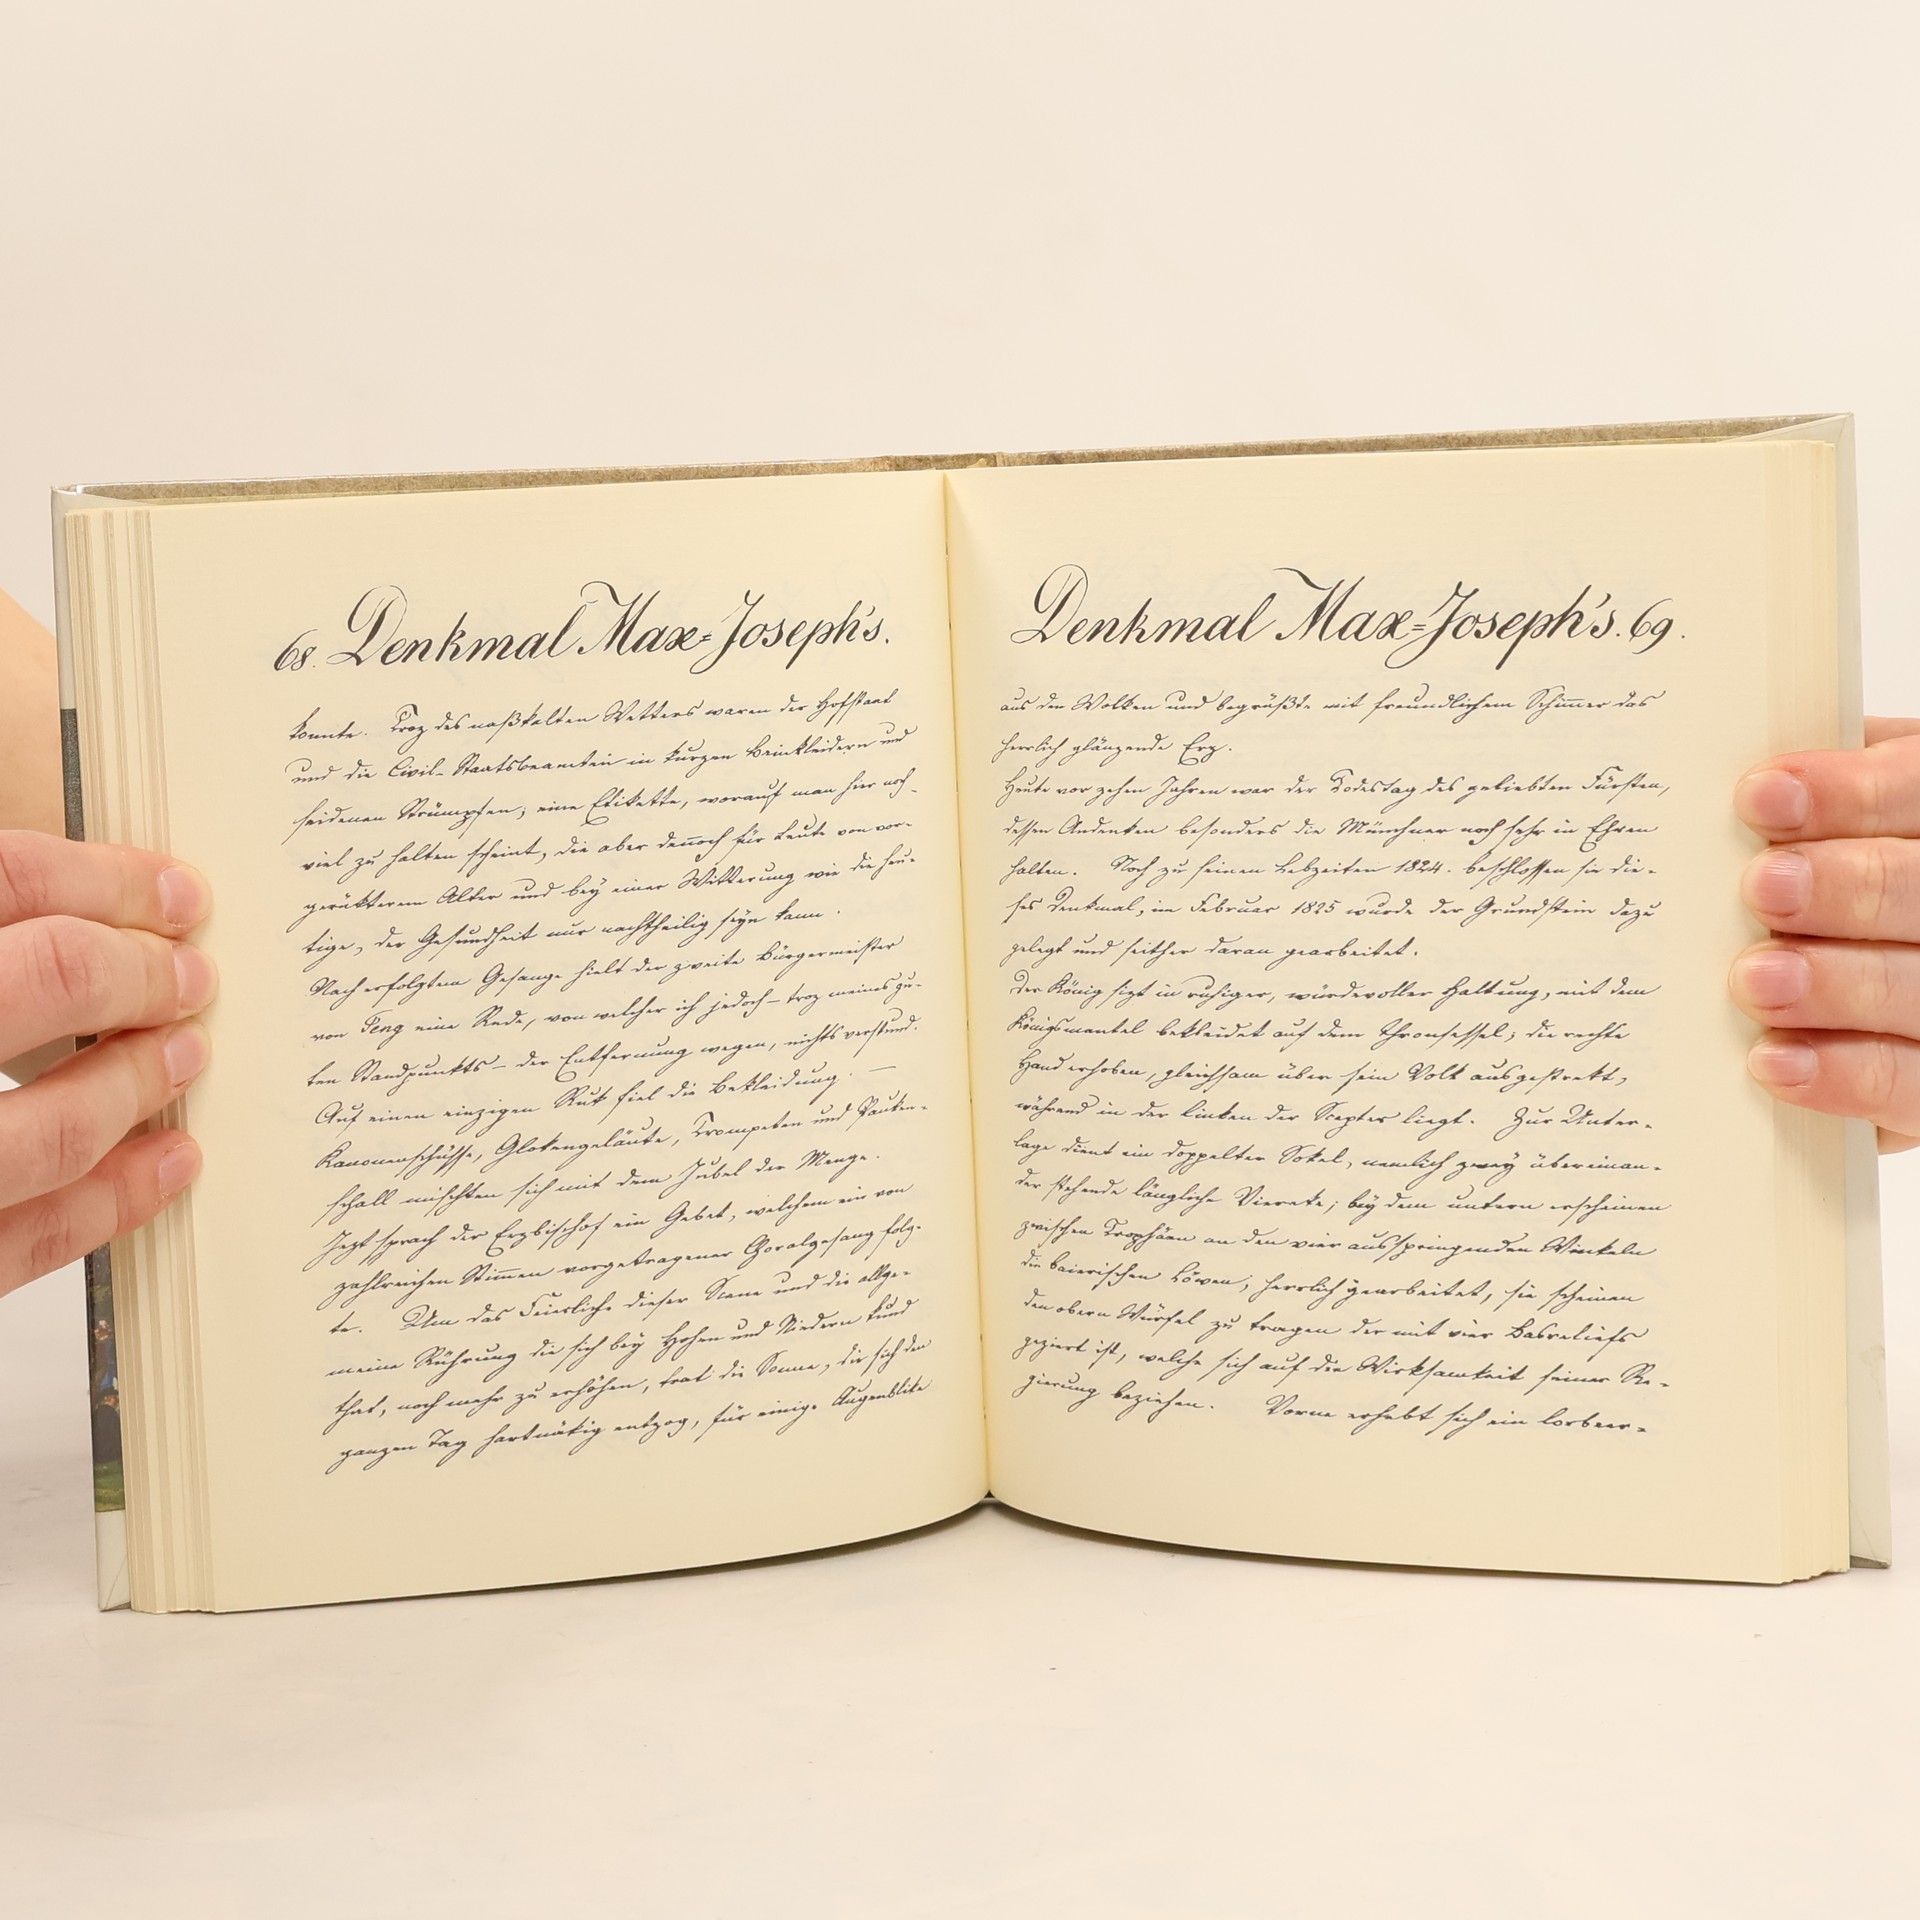 68. Denkmal Max-Joseph's.
konnte. Troz des naßkalten Wetters waren der Hofstaat
und die Civil-Staatsbeamten in kurzen Beinkleidern und
seidenen Strümpfen; eine Etikette, worauf man hier noch
viel zu halten scheint, die aber dennoch für Leute von vor-
gerükterem Alter und bey einer Witterung wie die heu-
tige, der Gesundheit nur nachtheilig seyn kann.
Nach erfolgtem Gesange hielt der zweite Bürgermeister
von Teng eine Rede, von welcher ich jedoch – troz meines gu-
ten Standpunkts – der Entfernung wegen, nichts verstund.
Auf einen einzigen Ruk fiel die Bekleidung. —
Kanonenschüsse, Glokengeläute, Trompeten und Pauken-
schall mischten sich mit dem Jubel der Menge.
Jezt sprach der Erzbischof ein Gebet, welchem ein von
zahlreichen Stimmen vorgetragener Choralgesang folg-
te. Um das Feierliche dieser Scene und die allge-
meine Rührung die sich bey Hohen und Niedern kund
that, noch mehr zu erhöhen, trat die Sonne, die sich den
ganzen Tag hartnäkig entzog, für einige Augenblike
Denkmal Max=Joseph's. 69.
aus den Wolken und begrüßte mit freundlichem Schimmer das
herrlich glänzende Erz.
Heute vor zehen Jahren war der Todestag des geliebten Fürsten,
dessen Andenken besonders die Münchner noch sehr in Ehren
halten. Noch zu seinen Lebzeiten 1824. beschlossen sie die-
ses Denkmal, im Februar 1825 wurde der Grundstein dazu
gelegt und seither daran gearbeitet.
Der König sizt in ruhiger, würdevoller Haltung, mit dem
Königsmantel bekleidet auf dem Thronsessel; die rechte
Hand erhoben, gleichsam über sein Volk ausgestrekt,
während in der linken der Scepter liegt. Zur Unter-
lage dient ein doppelter Sokel, nemlich zwey übereinan-
der stehende längliche Viereke; bey dem untern erscheinen
zwischen Trophäen an den vier ausspringenden Winkeln
die baierischen Löwen, herrlich gearbeitet, sie scheinen
den obern Würfel zu tragen der mit vier Basreliefs
geziert ist, welche sich auf die Wirksamkeit seiner Re-
gierung beziehen. Vorne erhebt sich ein lorbeer-